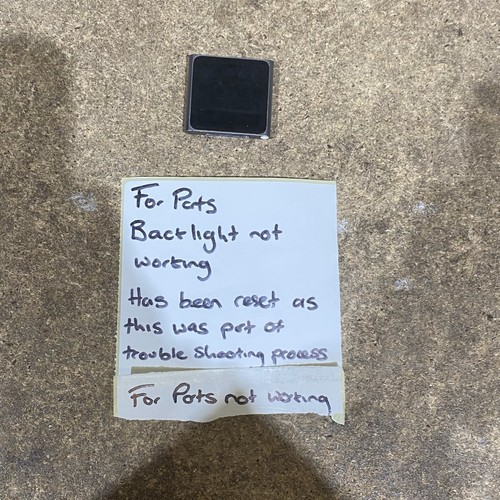 For Parts
Backlight not
working
Has been reset as
this was prt of
trouble shooting process
For Parts not working